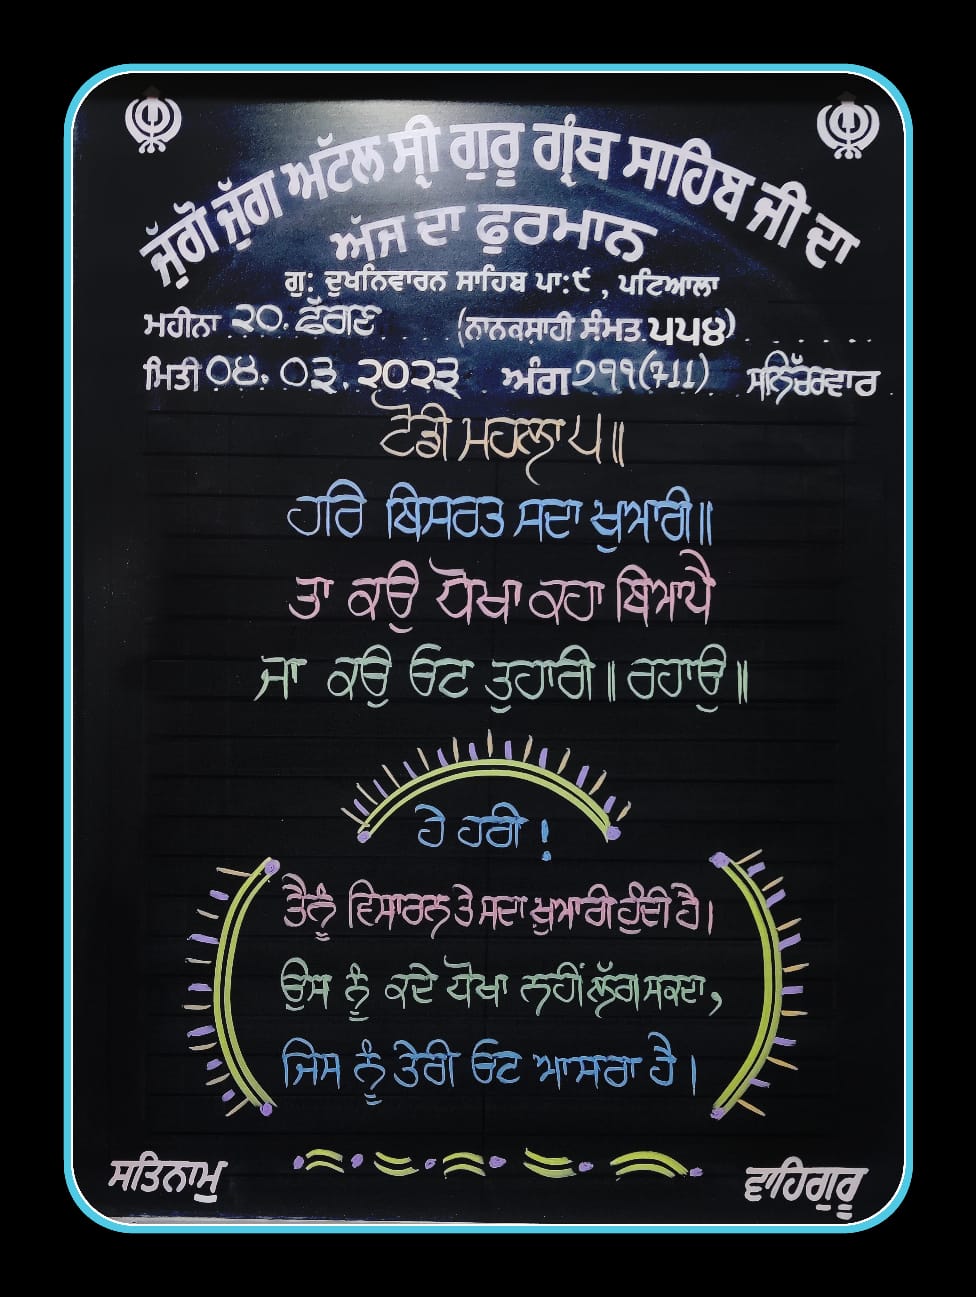 ਜੁੱਗੋ ਜੁੱਗ ਅੱਟਲ ਸ੍ਰੀ ਗੁਰੂ ਗ੍ਰੰਥ ਸਾਹਿਬ ਜੀ ਦਾ
ਅੱਜ ਦਾ ਫੁਰਮਾਨ
ਗੁ: ਦੁਖਨਿਵਾਰਨ ਸਾਹਿਬ ਪਾ:੯ , ਪਟਿਆਲਾ
ਮਹੀਨਾ ੨੦. ਫੱਗਣ (ਨਾਨਕਸ਼ਾਹੀ ਸੰਮਤ ੫੫੪)
ਮਿਤੀ ੦੪. ੦੩. ੨੦੨੩ ਅੰਗ ੭੧੧(711) ਸਨਿੱਚਰਵਾਰ
ਟੋਡੀ ਮਹਲਾ ੫॥
ਹਰਿ ਬਿਸਰਤ ਸਦਾ ਖੁਆਰੀ॥
ਤਾ ਕਉ ਧੋਖਾ ਕਹਾ ਬਿਆਪੈ
ਜਾ ਕਉ ਓਟ ਤੁਹਾਰੀ॥ ਰਹਾਉ॥
ਹੇ ਹਰੀ !
ਤੈਨੂੰ ਵਿਸਾਰਨ ਤੇ ਸਦਾ ਖ਼ੁਆਰੀ ਹੁੰਦੀ ਹੈ।
ਉਸ ਨੂੰ ਕਦੇ ਧੋਖਾ ਨਹੀਂ ਲੱਗ ਸਕਦਾ,
ਜਿਸ ਨੂੰ ਤੇਰੀ ਓਟ ਆਸਰਾ ਹੈ।
ਸਤਿਨਾਮੁ ਵਾਹਿਗੁਰੂ